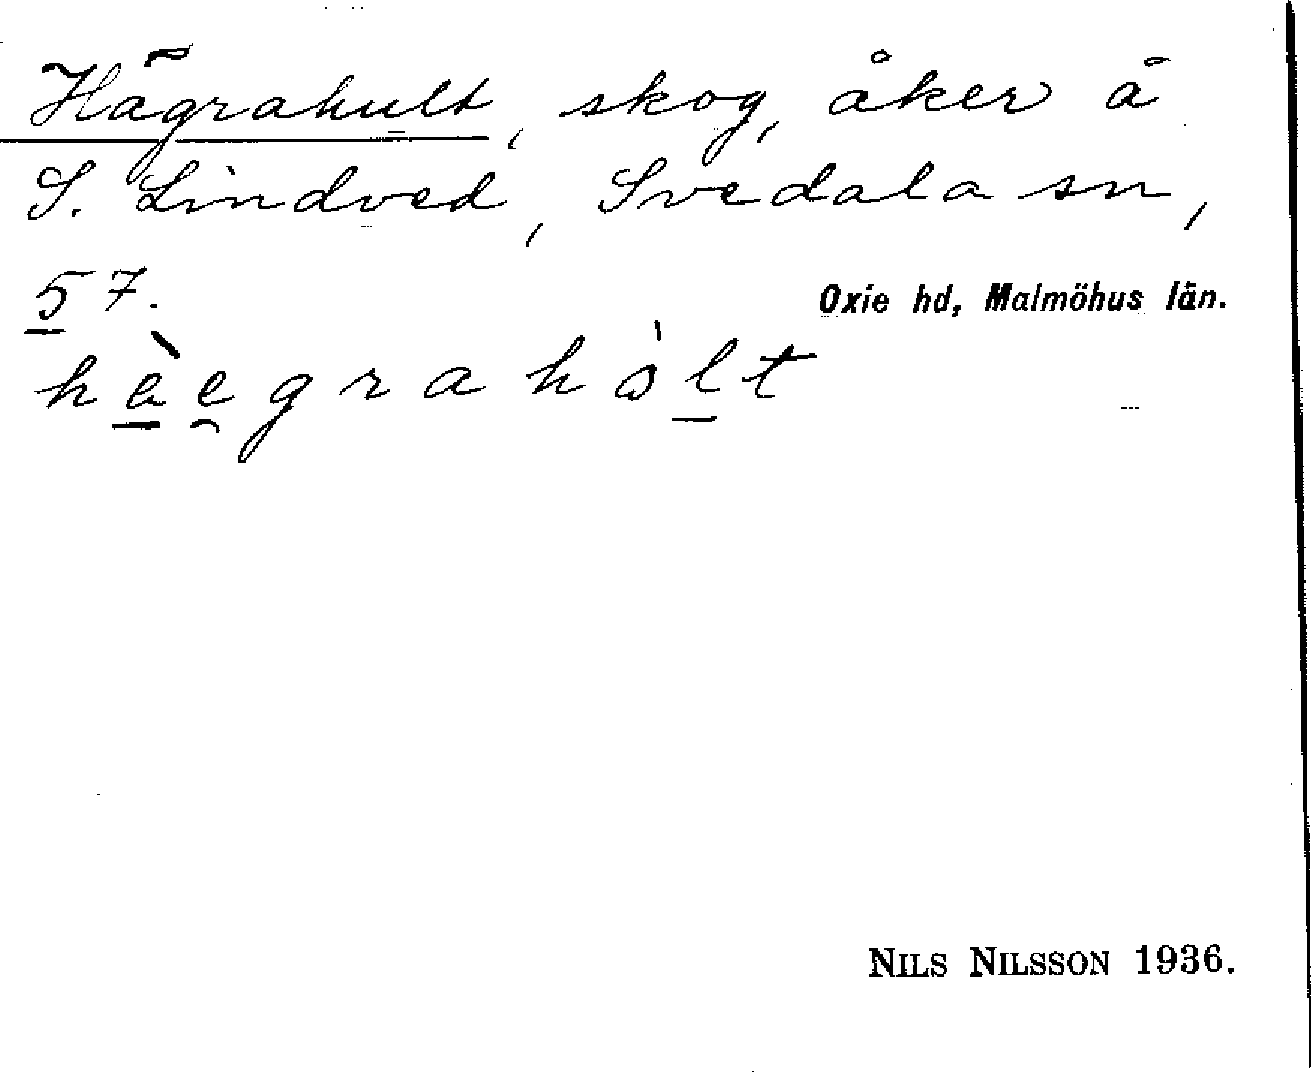 Hägrahult, skog, åker å
S. Lindved, Svedala sn,
57.
Oxie hd, Malmöhus län.
hàe̯grahòlt
NILS NILSSON 1936.